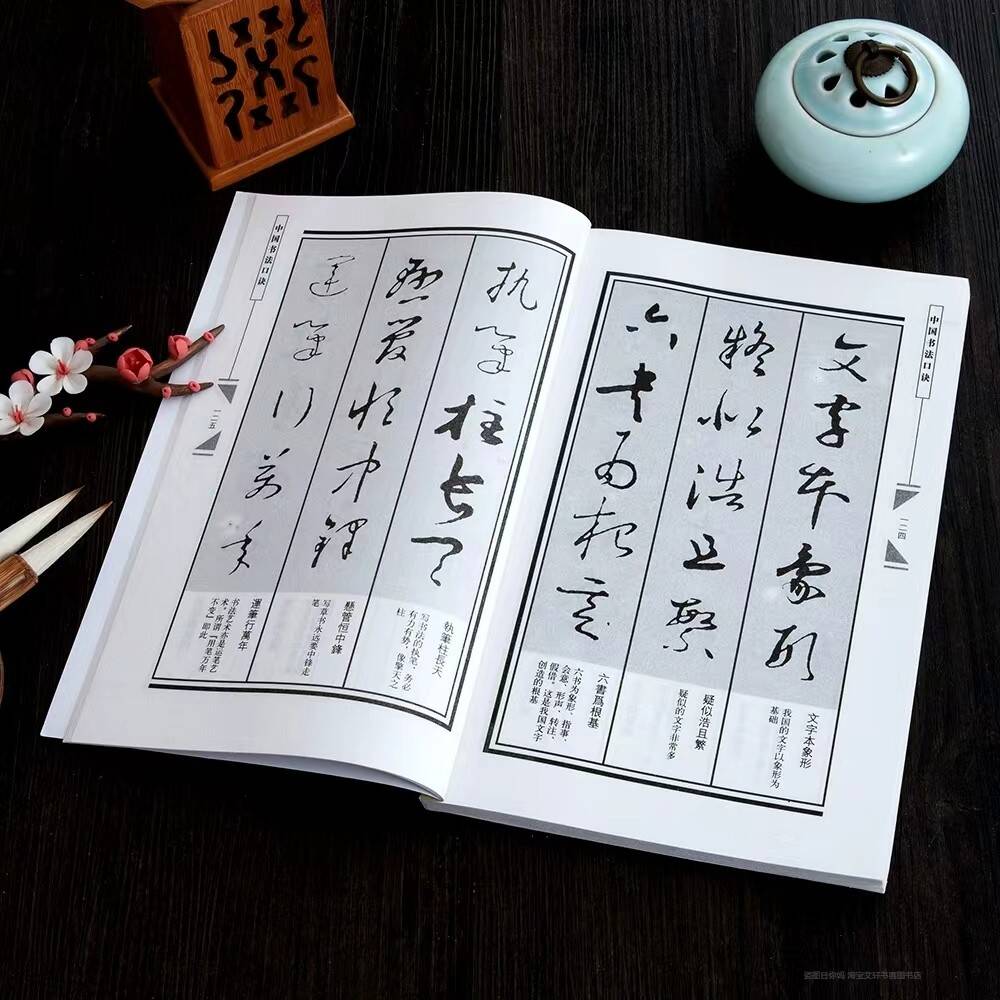 中国书法口诀
一二四
文字本象形
文字本象形
我国的文字以象形为
基础
疑似浩且繁
疑似浩且繁
疑似的文字非常多
六书为根基
六書爲根基
六书为象形、指事、
会意、形声、转注、
假借，这是我国文字
创造的根基
执笔柱长天
執筆柱長天
写书法的执笔，务必
有力有势，像擎天之
柱
悬管恒中锋
懸管恒中鋒
写草书永远要中锋走
笔
运笔行万年
運筆行萬年
书法艺术亦是运笔艺
术，所谓“用笔万年
不变”即此
中国书法口诀
一二五